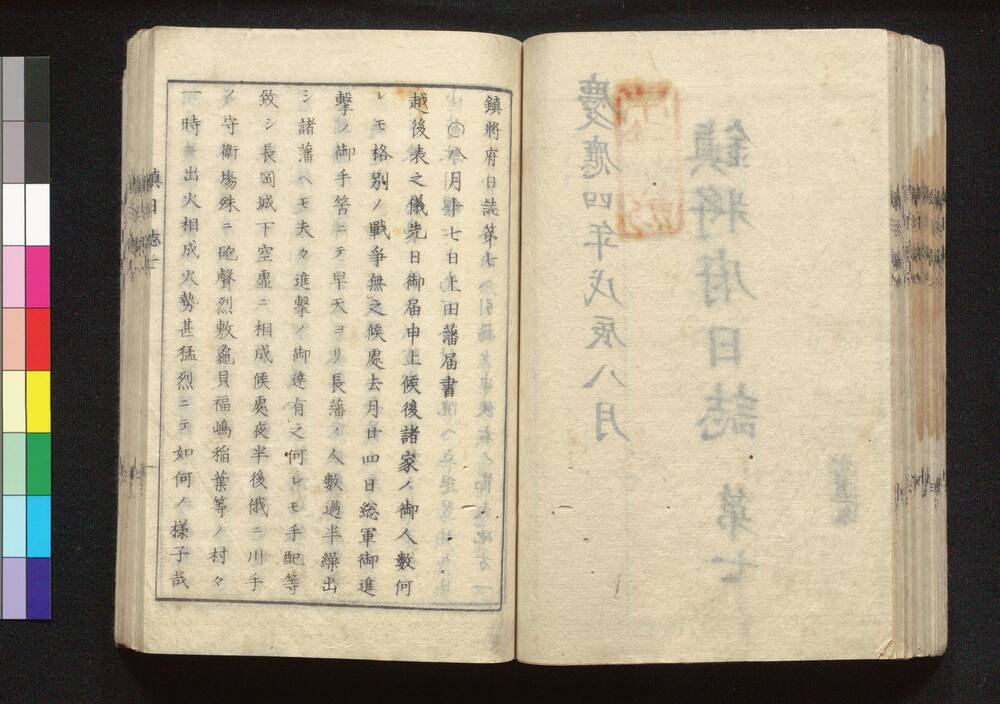 慶應四年戊辰八月
鎮將府日誌 第七
鎮將府日誌第七
○八月十七日上田藩届書
越後表之儀先日御届申上候後諸家ノ御人數何
レモ格別ノ戰爭無之候處去月廿四日総軍御進
擊ノ御手筈ニテ早天ヨリ長藩ノ人數過半繰出
シ諸藩ヘモ夫々進擊ノ御達有之何レモ手配等
致シ長岡城下空虛ニ相成候處夜半後俄ニ川手
ノ守衛塲殊ニ砲聲烈敷龜貝福嶋稲葉等ノ村々
一時ニ出火相成火勢甚猛烈ニテ如何ノ様子哉